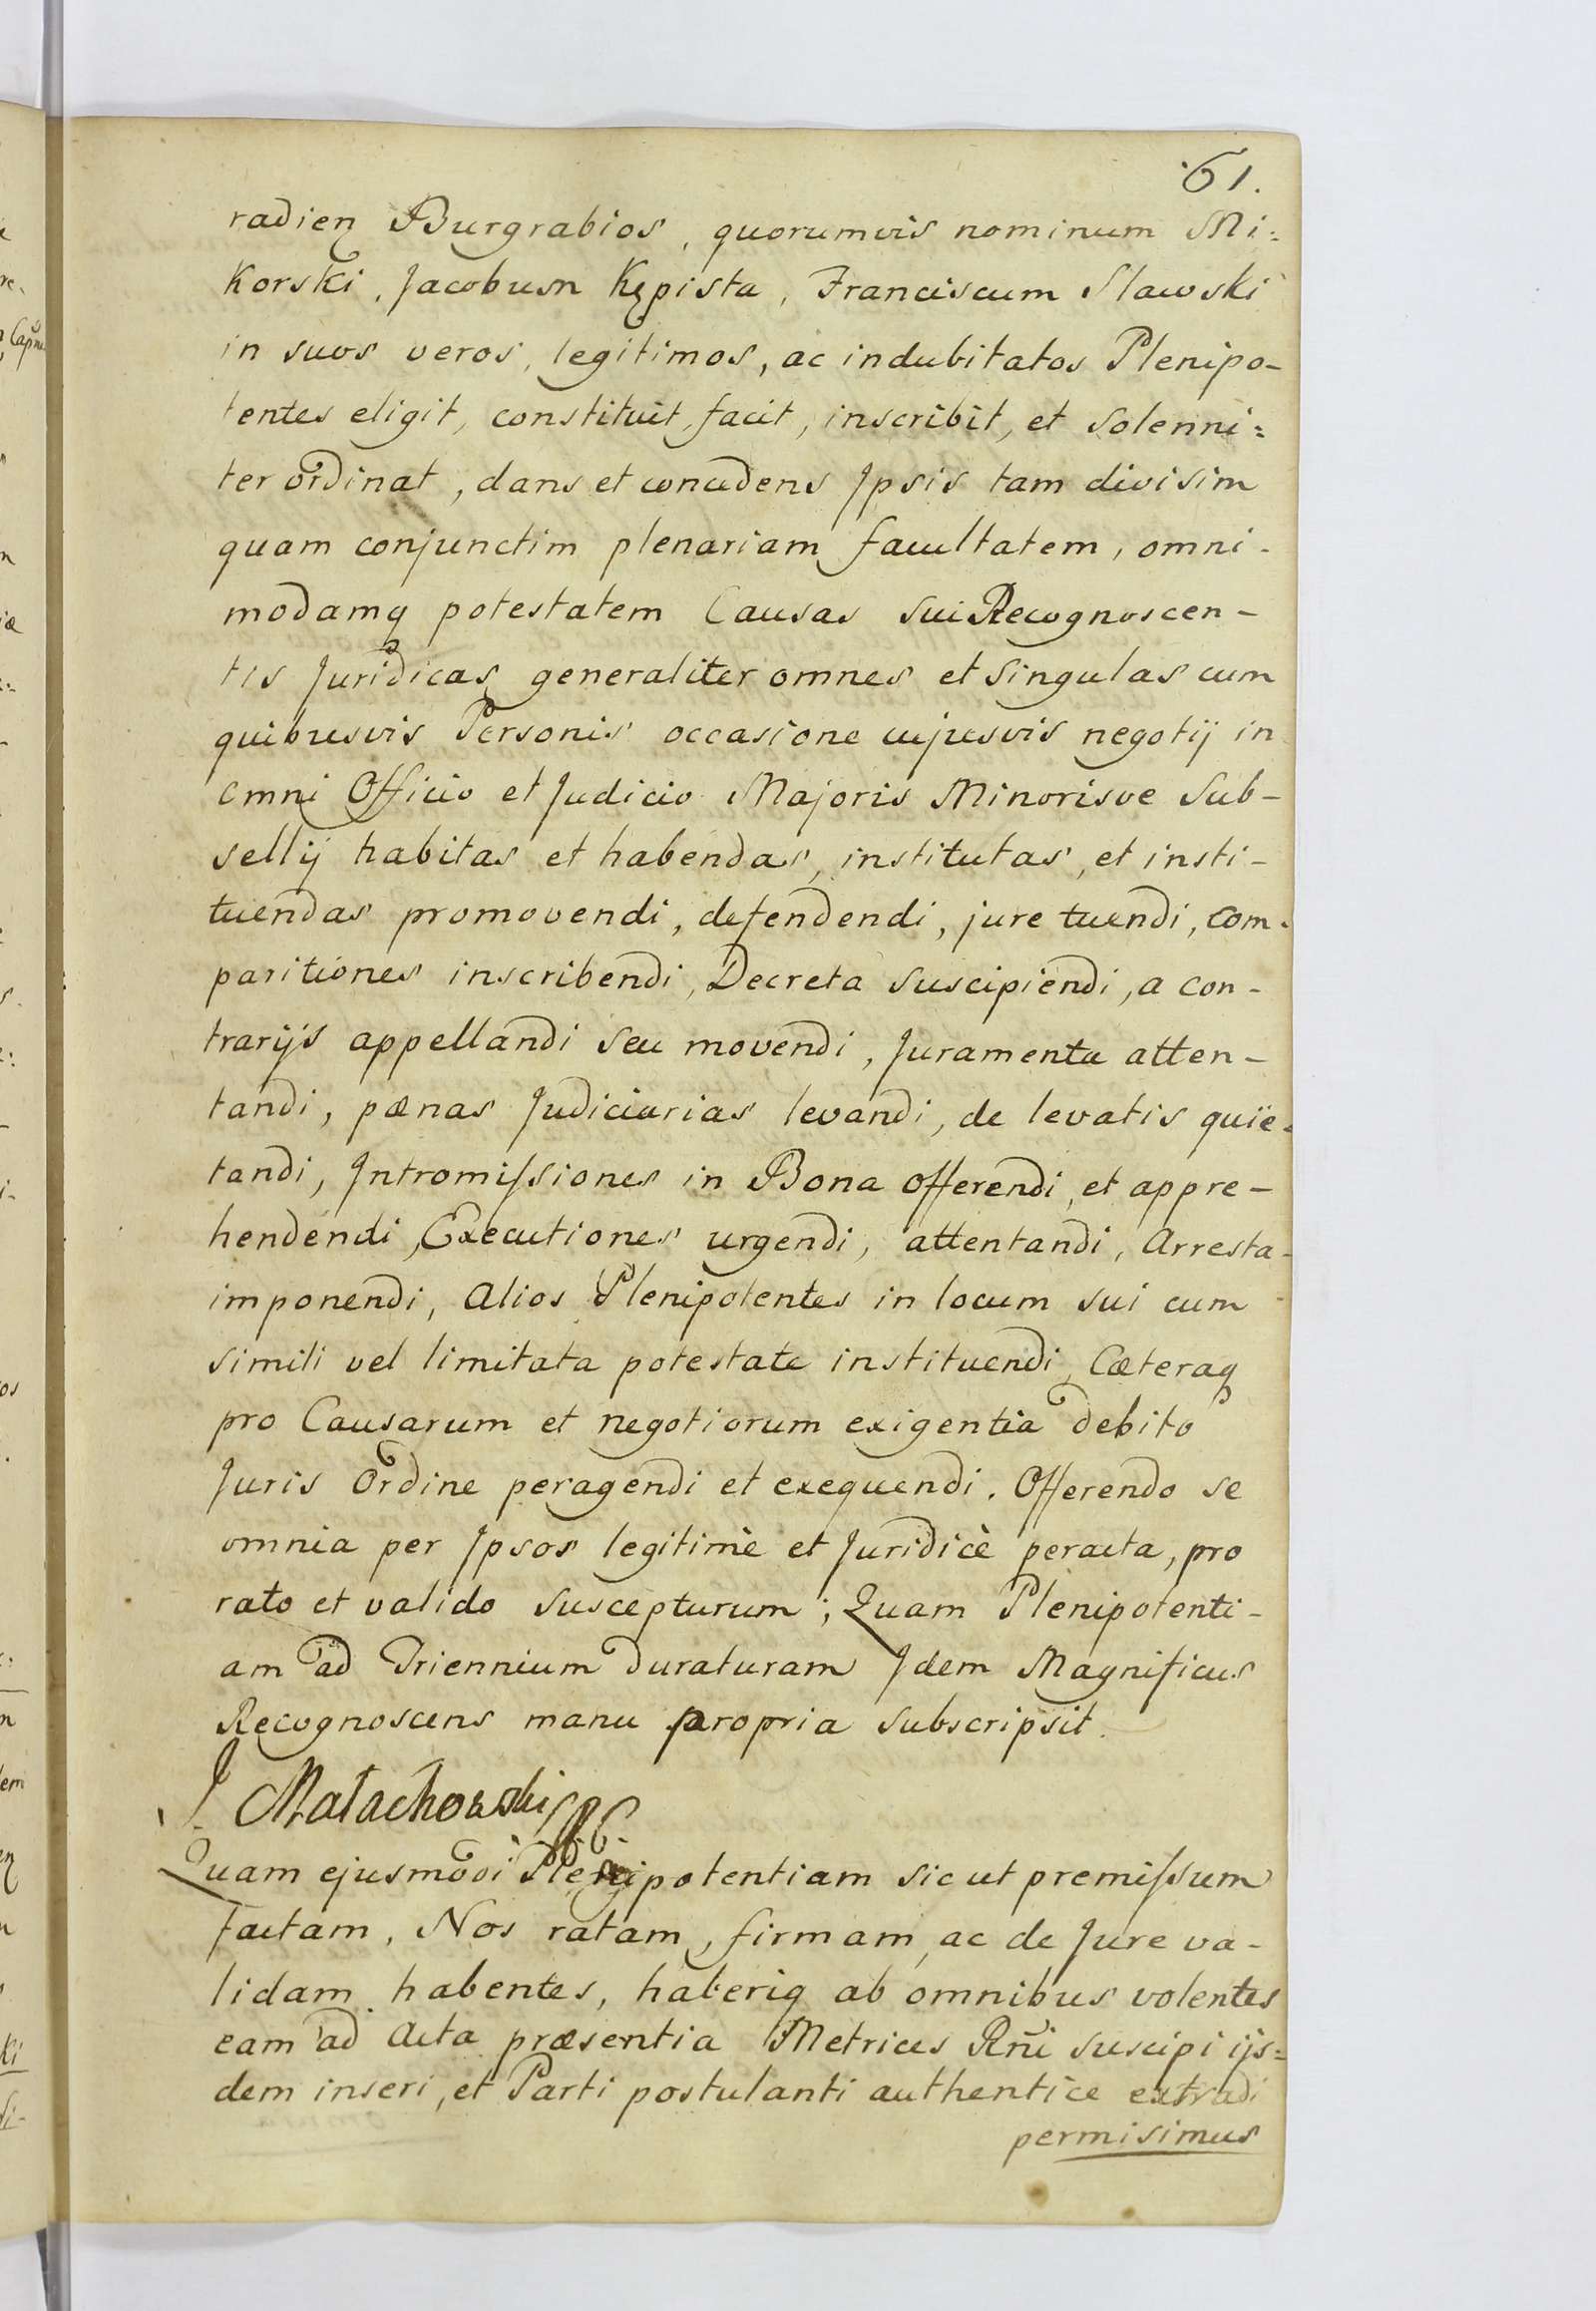 61.
radien Burgrabios, quorumvis nominum Mi:
korski, Jacobum Kępista, Franciscum Slawski
in suos veros, legitimos, ac indubitatos Plenipo-
tentes eligit, constituit, facit, inscribit, et Solenni:
ter ordinat, dans et concedens Jpsis tam divisim
quam conjunctim plenariam facultatem, omni-
modamq potestatem Causas sui Recognoscen-
tis Juridicas generaliter omnes et singulas cum
quibusvis Personis occasione cujusvis negotij in
omni Officio et Judicio Majoris Minorisve Sub-
sellij habitas et habendas, institutas, et insti-
tuendas promovendi, defendendi, jure tuendi, com-
paritiones inscribendi, Decreta suscipiendi, a con-
trarijs appellandi seu movendi, Juramenta atten-
tandi, pænas Judiciarias levandi, de levatis quie-
tandi, Jntromissiones in Bona offerendi, et appre-
hendendi, Executiones urgendi, attentandi, Arresta-
imponendi, Alios Plenipotentes in locum sui cum
simili vel limitata potestate instituendi, Cæteraq
pro Causarum et negotiorum exigentia debito
Juris Ordine peragendi et exequendi. Offerendo se
omnia per Jpsos legitimè et Juridicè peracta, pro
rato et valido suscepturum; Quam Plenipotenti-
am ad Triennium duraturam Jdem Magnificus
Recognoscens manu propria subscripsit.
J. Małachowski
Quam ejusmodi Plenipotentiam sic ut premissum
factam, Nos ratam, firmam, ac de Jure va-
lidam habentes, haberiq ab omnibus volentes
eam ad Acta præsentia Metrices Rñi suscipi ijs=
dem inseri, et Parti postulanti authentice extradi
permisimus